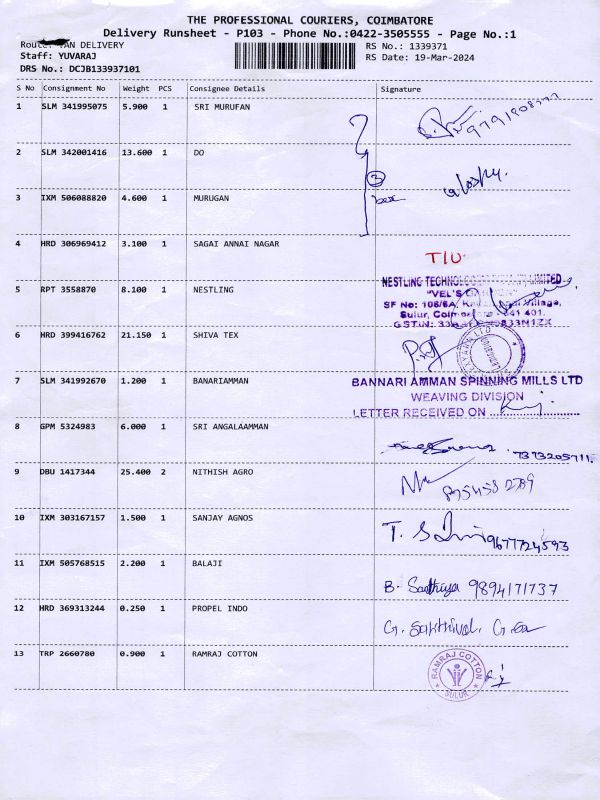 THE PROFESSIONAL COURIERS, COIMBATORE
Delivery Runsheet - P103 - Phone No.:0422-3505555 - Page No.:1
Route: VAN DELIVERY RS No.: 1339371
Staff: YUVARAJ RS Date: 19-Mar-2024
DRS No.: DCJB133937101
S No Consignment No Weight PCS Consignee Details Signature
1 SLM 341995075 5.900 1 SRI MURUFAN
2 SLM 342001416 13.600 1 DO
3 box
3 IXM 506088820 4.600 1 MURUGAN
4 HRD 306969412 3.100 1 SAGAI ANNAI NAGAR
TIU
5 RPT 3558870 8.100 1 NESTLING
NESTLING LIMITED
"VEL'S
SF No: Village,
Sulur, 641 401.
GSTIN: 33 833M1ZX
6 HRD 399416762 21.150 1 SHIVA TEX
7 SLM 341992670 1.200 1 BANARIAMMAN
BANNARI AMMAN SPINNING MILLS LTD
WEAVING DIVISION
LETTER RECEIVED ON
8 GPM 5324983 6.000 1 SRI ANGALAAMMAN
7373205711
9 DBU 1417344 25.400 2 NITHISH AGRO
10 IXM 303167157 1.500 1 SANJAY AGNOS T. 9677724593
11 IXM 505768515 2.200 1 BALAJI B. Sathiya 9894171737
12 HRD 369313244 0.250 1 PROPEL INDO G. Sakthivel.
13 TRP 2660780 0.900 1 RAMRAJ COTTON RAMRAJ COTTON
SULUR